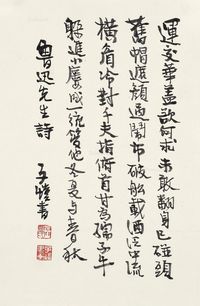 運交華蓋欲何求未敢翻身已碰頭
舊帽遮顏過鬧市破船載酒泛中流
橫眉冷對千夫指俯首甘為孺子牛
躲進小樓成一統管他冬夏与春秋
魯迅先生詩
子愷書